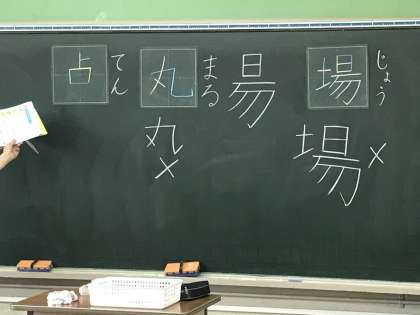 じょう
場
場×
昜
まる
丸
丸×
てん
占